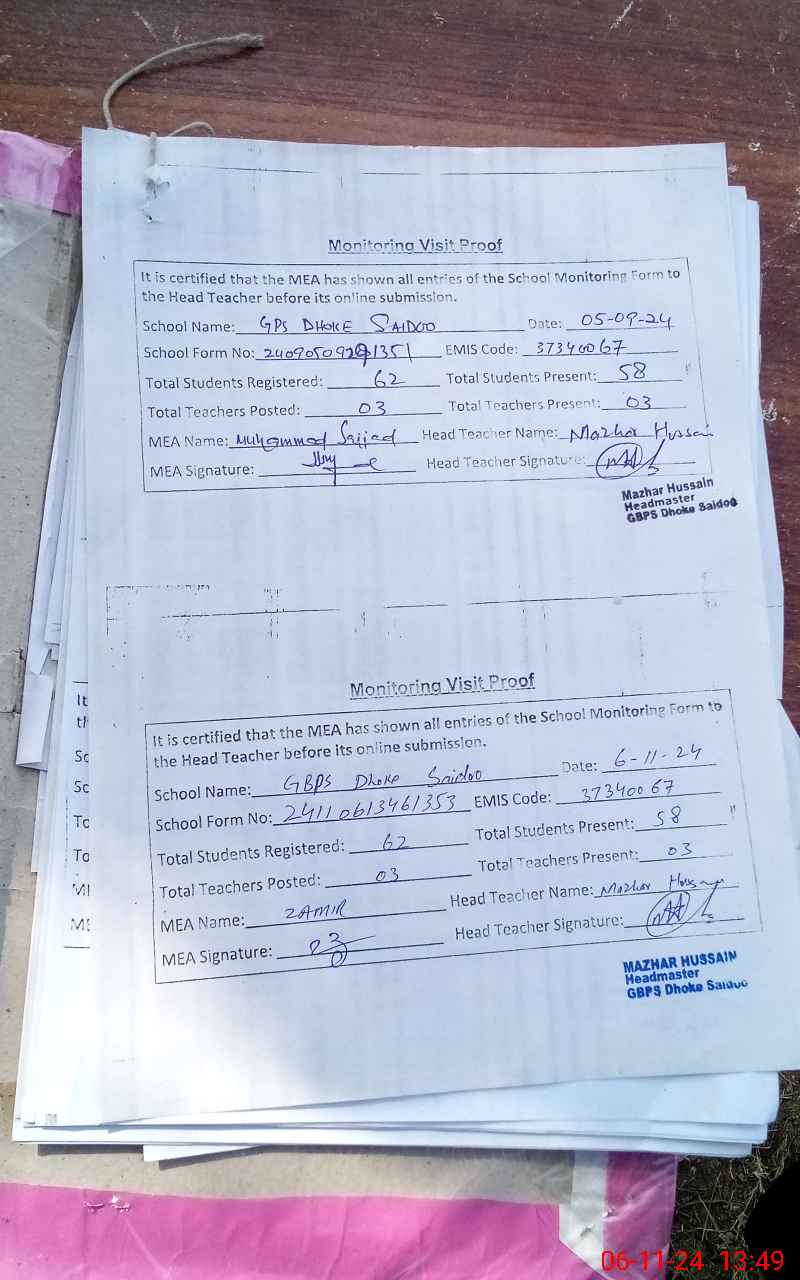 Monitoring Visit Proof
It is certified that the MEA has shown all entries of the School Monitoring Form to
the Head Teacher before its online submission.
School Name: GPS DHOKE SAIDOO Date: 05-09-24
School Form No: EMIS Code: 37340067
Total Students Registered: 62 Total Students Present: 58
Total Teachers Posted: 03 Total Teachers Present: 03
MEA Name: Muhammad Sajjad Head Teacher Name: Mazhar Hussain
MEA Signature: Head Teacher Signature:
Mazhar Hussain
Headmaster
GBPS Dhoke Saidoo
Monitoring Visit Proof
It is certified that the MEA has shown all entries of the School Monitoring Form to
the Head Teacher before its online submission.
School Name: GBPS Dhoke Saidoo Date: 6-11-24
School Form No: 24110613461353 EMIS Code: 37340067
Total Students Registered: 62 Total Students Present: 58
Total Teachers Posted: 03 Total Teachers Present: 03
MEA Name: ZAMIR Head Teacher Name: Mazhar Hussain
MEA Signature: Head Teacher Signature:
MAZHAR HUSSAIN
Headmaster
GBPS Dhoke Saidoo
It
th
Sc
Sc
To
To
MI
ME
06-11-24 13:49